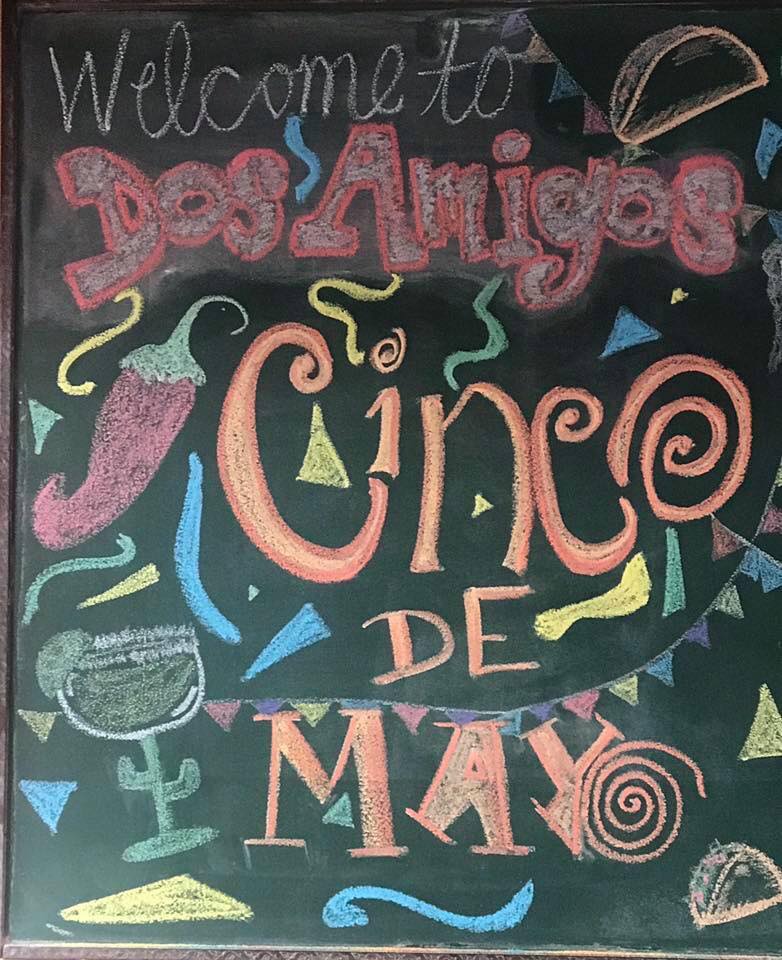 Welcome to
Dos Amigos
Cinco
DE
MAYO